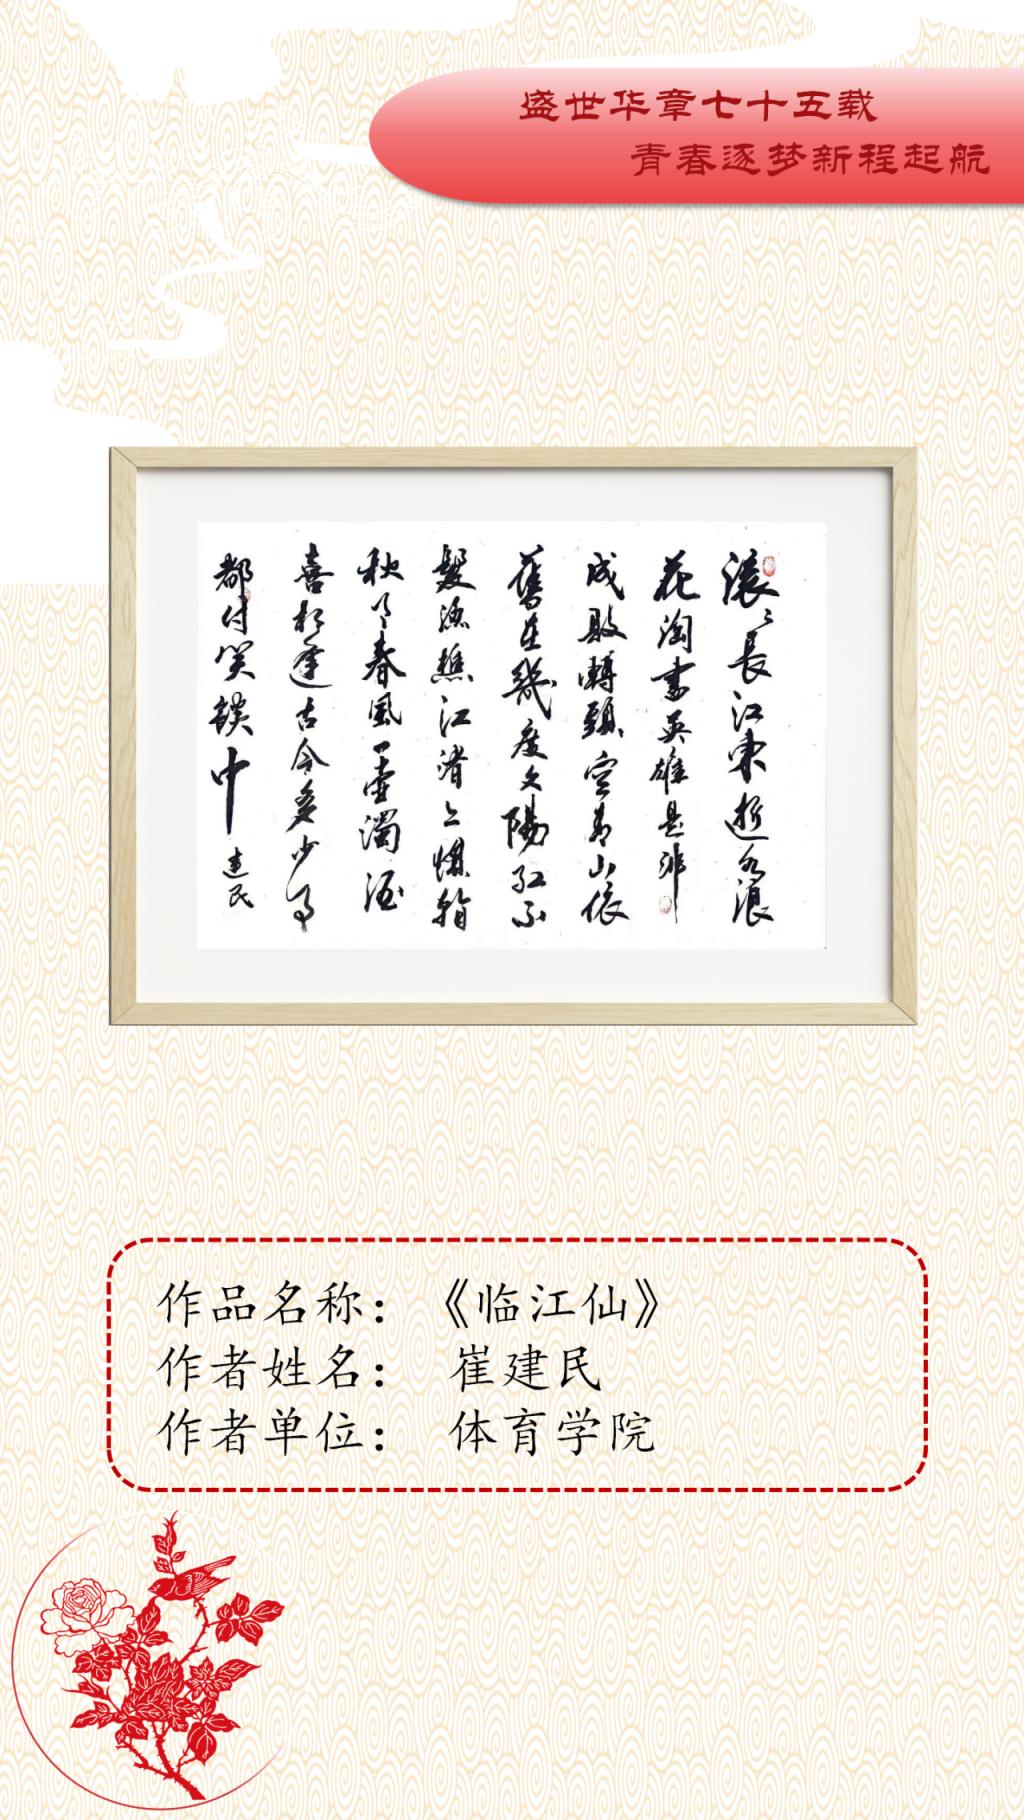 盛世华章七十五载
青春逐梦新程起航
滚〻長江東逝水浪
花淘尽英雄是非
成敗轉頭空青山依
舊在幾度夕陽红白
髮漁樵江渚上慣看
秋月春風一壺濁酒
喜相逢古今多少事
都付笑談中
建民
作品名称：《临江仙》
作者姓名： 崔建民
作者单位： 体育学院